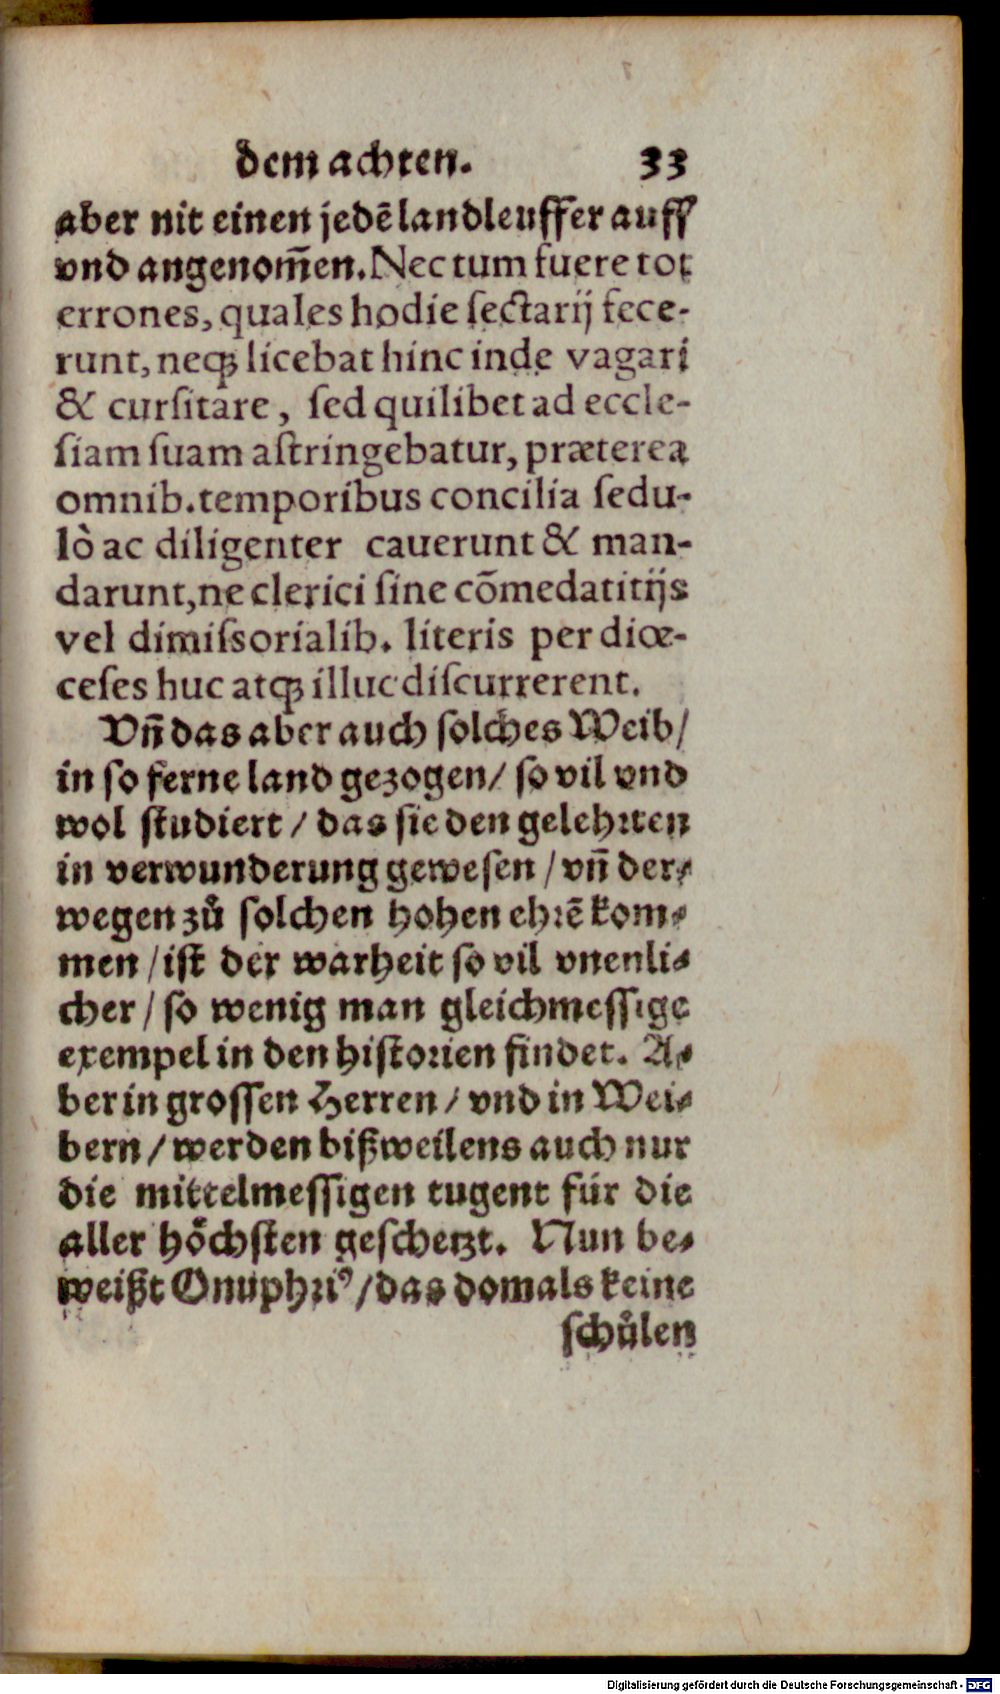 dem achten. 33
aber nit einen jedē landleuffer auff
vnd angenom̃en. Nec tum fuere tot
errones, quales hodie ſectarij fece-
runt, neqꝫ licebat hinc inde vagari
& curſitare, ſed quilibet ad eccle-
ſiam ſuam aſtringebatur, præterea
omnib. temporibus concilia ſedu-
lò ac diligenter cauerunt & man-
darunt, ne clerici ſine cōmedatitijs
vel dimiſsorialib. literis per diœ-
ceſes huc atqꝫ illuc diſcurrerent.
Vñ das aber auch ſolches Weib/
in ſo ferne land gezogen/ ſo vil vnd
wol ſtudiert/ das ſie den gelehrten
in verwunderung geweſen/ vñ der-
wegen zů ſolchen hohen ehrē kom-
men/ iſt der warheit ſo vil vnenli-
cher/ ſo wenig man gleichmeſſige
exempel in den hiſtorien findet. A-
ber in groſſen Herren/ vnd in Wei-
bern/ werden bißweilens auch nur
die mittelmeſſigen tugent für die
aller hoͤchſten geſchetzt. Nun be-
weißt Onuphriꝰ/ das domals keine
ſchůlen
Digitalisierung gefördert durch die Deutsche Forschungsgemeinschaft - DFG